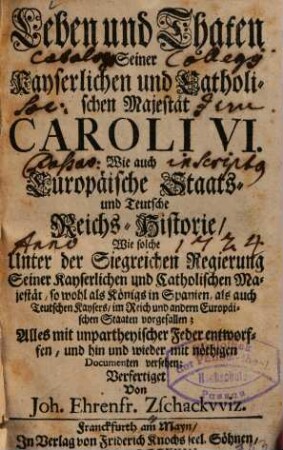 Leben und Thaten
Seiner
Catalog Collegij
Kayserlichen und Catholi-
Soc:
schen Majestät
CAROLI VI.
Wie auch
inscriptg
Europäische Staats-
und Teutsche
Reichs-Historie/
Anno 1724
Wie solche
Unter der Siegreichen Regierung
Seiner Kayserlichen und Catholischen Ma-
jestät, so wohl als Königs in Spanien, als auch
Teutschen Kaysers, im Reich und andern Europäi-
schen Staaten vorgefallen;
Alles mit unpartheyischer Feder entworf-
fen, und hin und wieder mit nöthigen
Documenten versehen;
Verfertiget
Von
Joh. Ehrenfr. Zschackvviz.
Franckfurth am Mayn/
In Verlag von Friderich Knochs seel. Söhnen,